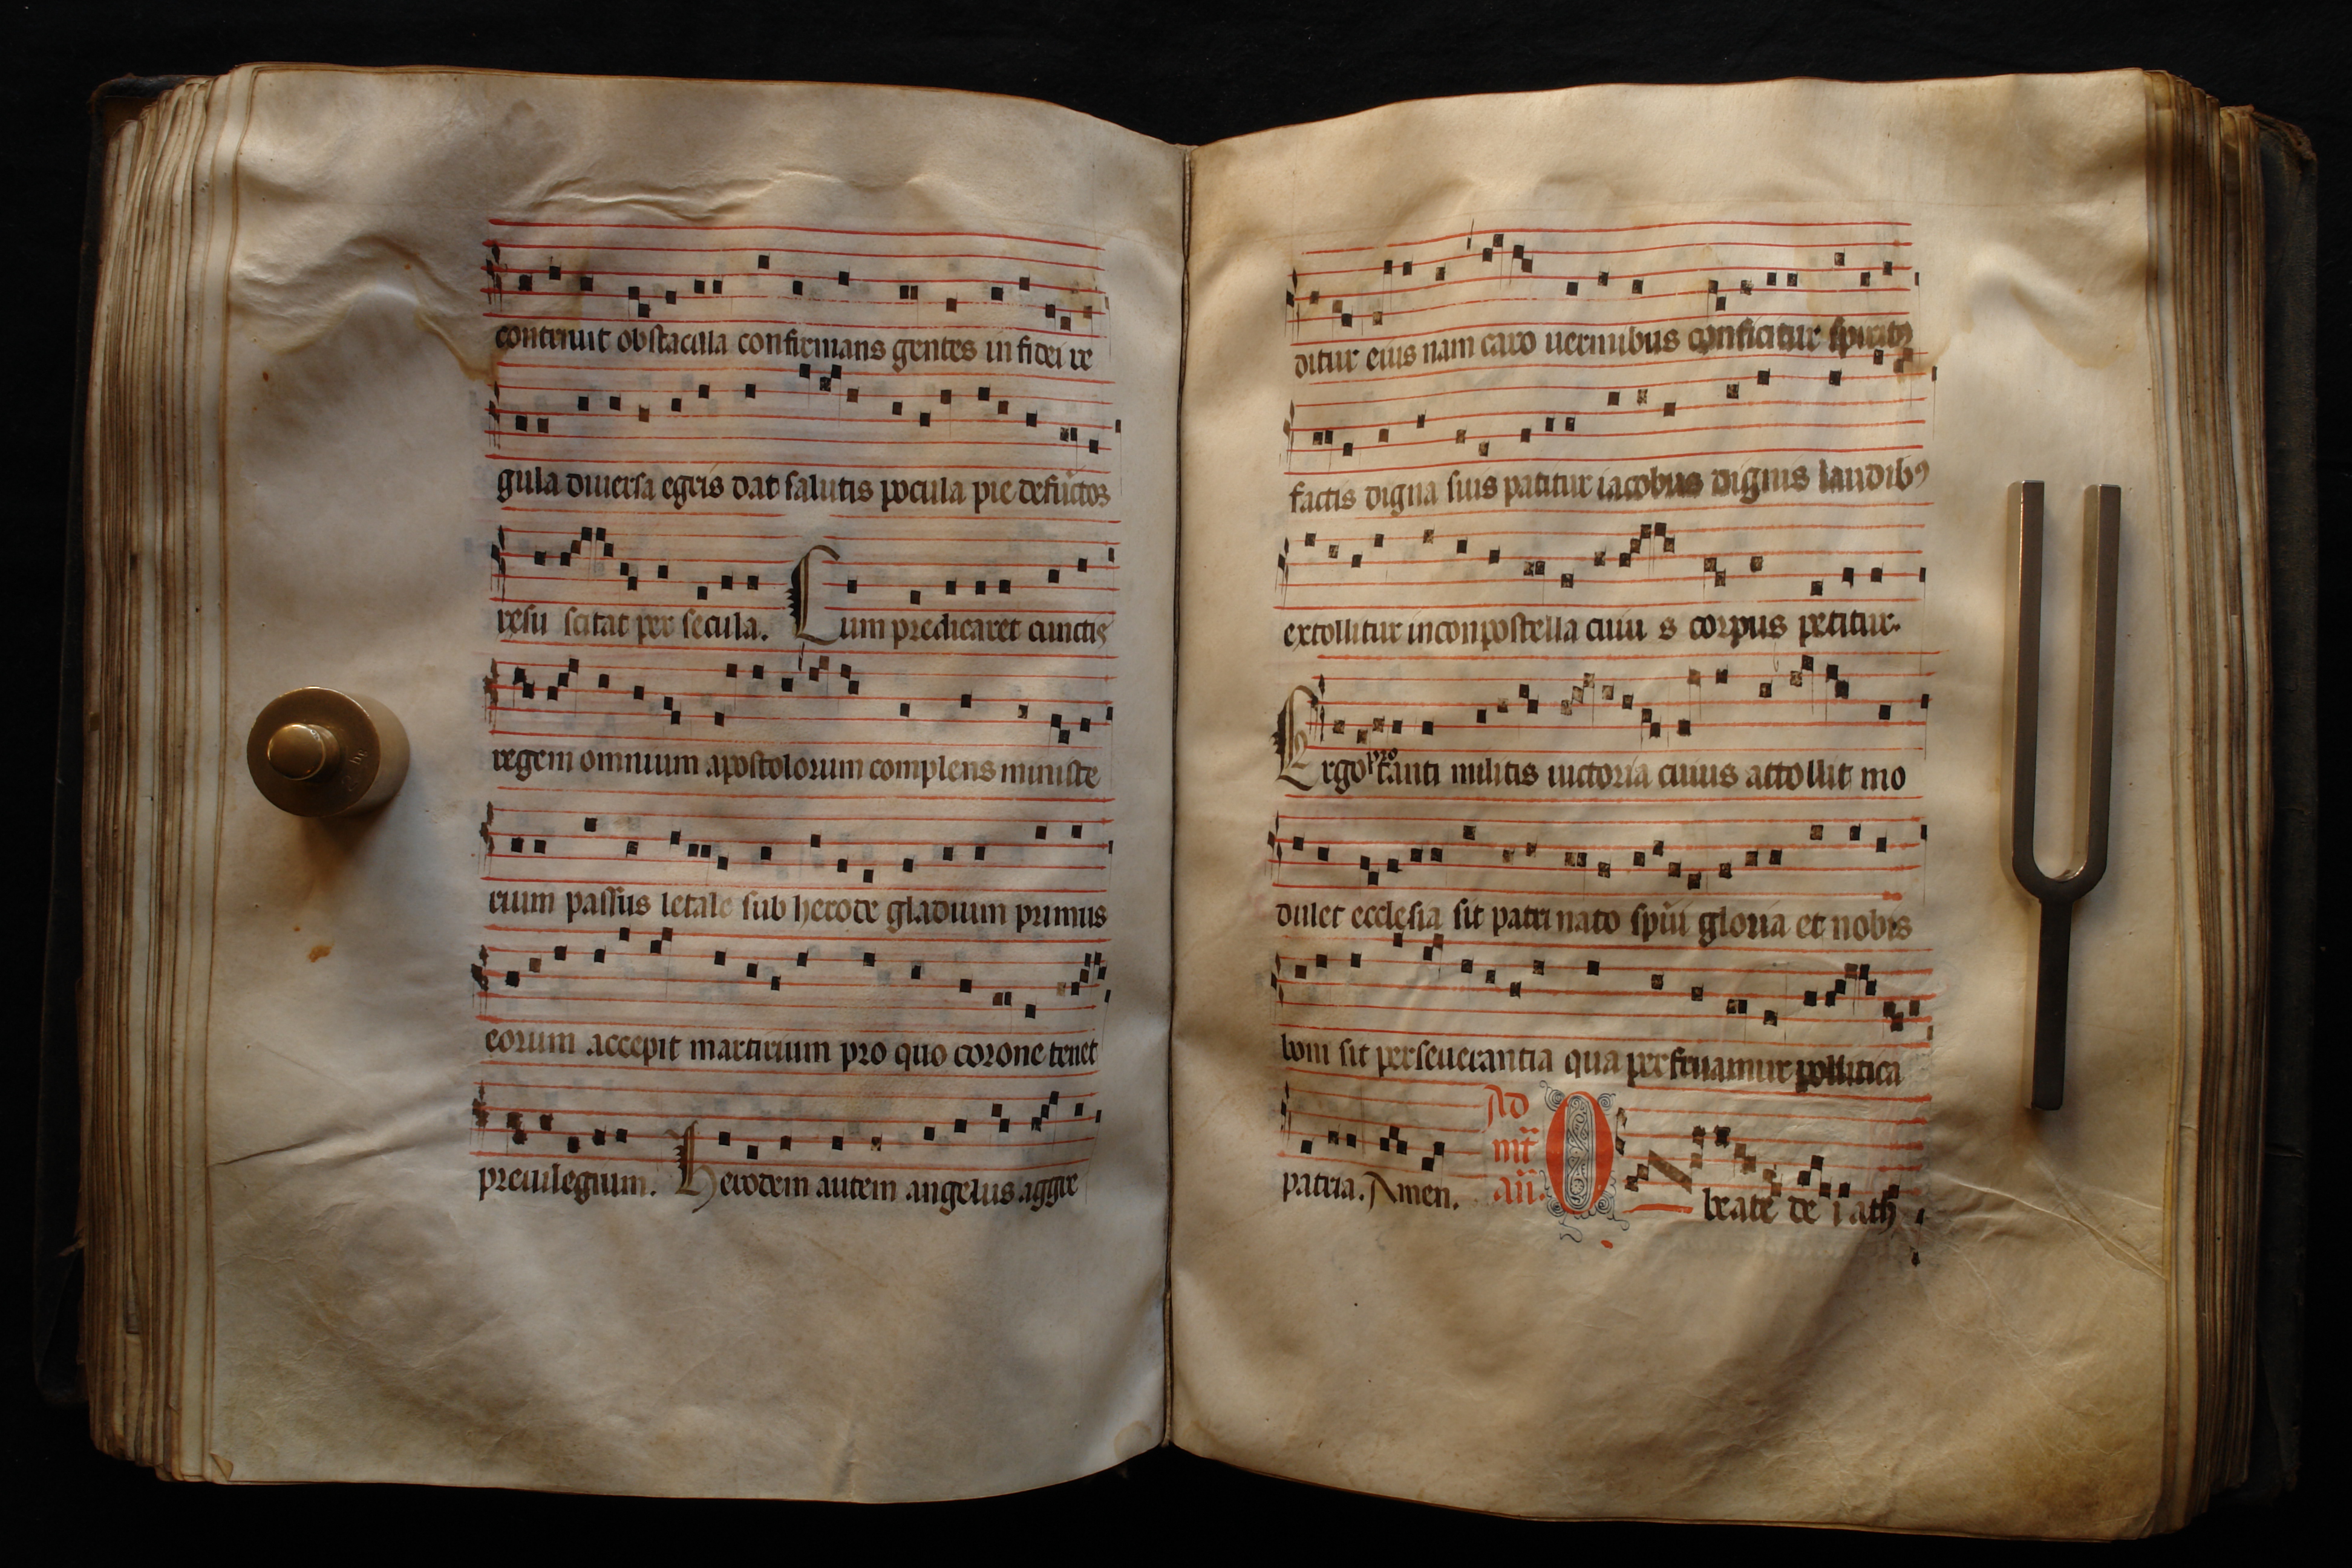 contriuit obstacula confirmans gentes in fidei re
gula diuersa egris dat salutis pocula pie defūctos
resu scitat per secula. Cum predicaret cunctis
regem omnium apostolorum complens ministe
rium passus letale sub herode gladium primus
eorum accepit martirium pro quo corone tenet
preuilegium. Herodem autem angelus aggre
ditur eius nam caro uermibus conficitur spiritꝰ
factis digna suis patitur iacobus dignis laudibꝰ
extollitur in conpostella cuiu s corpus petitur.
Ergo pro tanti militis uictoria cuius attollit mo
dulet ecclesia sit patri nato spūi gloria et nobis
boni sit perseuerantia qua perfruamur pollitica
patria. Amen. Ad mt̄ añ. O beate de i ath